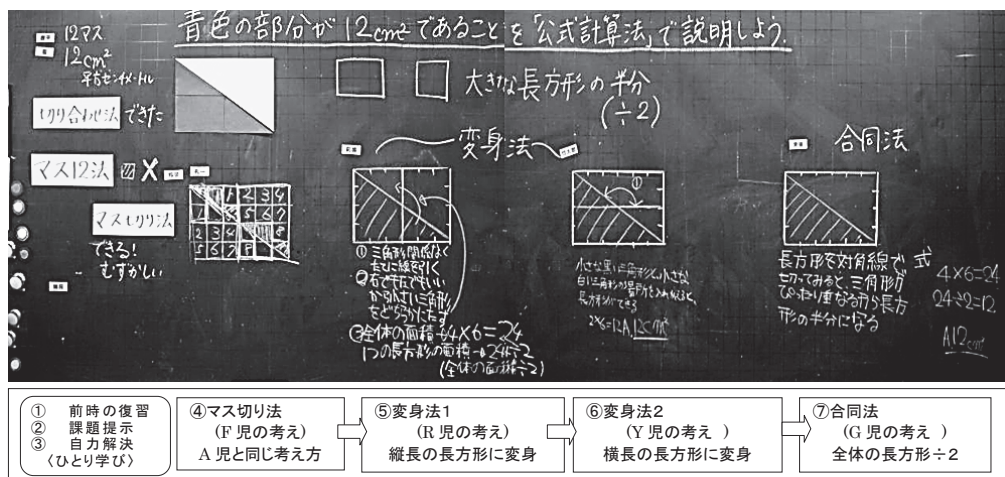 青色の部分が12cm²であることを「公式計算法」で説明しよう.
12マス
12cm²
平方センチメートル
切り合わせ法 できた
大きな長方形の半分
(÷2)
変身法
合同法
マス12法
マス切り法
できる!
むずかしい
① 三角形関係なく
たてに線を引く
② 右でも左でもいい
から小さい三角形
をどちらかにたす
③全体の面積→4×6=24
1つの長方形の面積→24÷2
(全体の面積÷2)
小さな黒い三角形と小さな
白い三角形の場所を入れかえると、
長方形ができる
2×6=12 A12cm²
長方形を対角線で
切ってみると、三角形が
ぴったり重なるから長方
形の半分になる
式
4×6=24
24÷2=12
A12cm²
① 前時の復習
② 課題提示
③ 自力解決
〈ひとり学び〉
④マス切り法
(F 児の考え)
A 児と同じ考え方
⑤変身法1
(R 児の考え)
縦長の長方形に変身
⑥変身法2
(Y 児の考え )
横長の長方形に変身
⑦合同法
(G 児の考え )
全体の長方形÷2